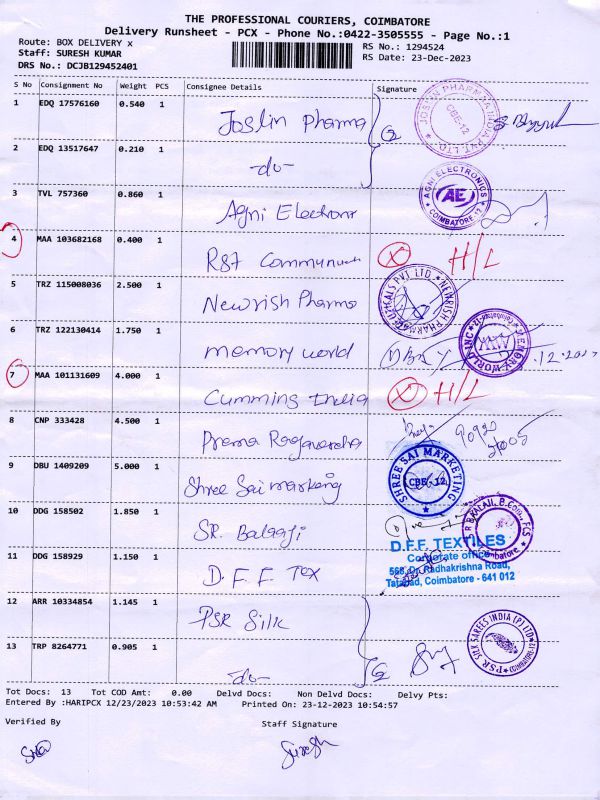 THE PROFESSIONAL COURIERS, COIMBATORE
Delivery Runsheet - PCX - Phone No.:0422-3505555 - Page No.:1
Route: BOX DELIVERY x
RS No.: 1294524
Staff: SURESH KUMAR
RS Date: 23-Dec-2023
DRS No.: DCJB129452401
S No Consignment No Weight PCS Consignee Details Signature
1 EDQ 17576160 0.540 1 Joslin Pharma
2 EDQ 13517647 0.210 1 -do-
3 TVL 757360 0.860 1 Agni Electron
AGNI ELECTRONICS AE COIMBATORE 12
4 MAA 103682168 0.400 1 H/L
5 TRZ 115008036 2.500 1 Newrish Pharma
6 TRZ 122130414 1.750 1 memory world
7 MAA 101131609 4.000 1 Cumming India H/L
8 CNP 333428 4.500 1 Prema
9 DBU 1409209 5.000 1 Shree Sai marketing
SHREE SAI MARKETING CBE-12
10 DDG 158502 1.850 1 SR. Balaaji
D.F.F. TEXTILES
Corporate office
11 DDG 158929 1.150 1 D.F.F Tex
568, Dr. Radhakrishna Road,
Tatabad, Coimbatore - 641 012
12 ARR 10334854 1.145 1 PSR Silk
PSR SILK SAREES INDIA (P) LTD COIMBATORE-12
13 TRP 8264771 0.905 1 -do-
Tot Docs: 13 Tot COD Amt: 0.00 Delvd Docs: Non Delvd Docs: Delvy Pts:
Entered By :HARIPCX 12/23/2023 10:53:42 AM Printed On: 23-12-2023 10:54:57
Verified By Staff Signature
Suresh